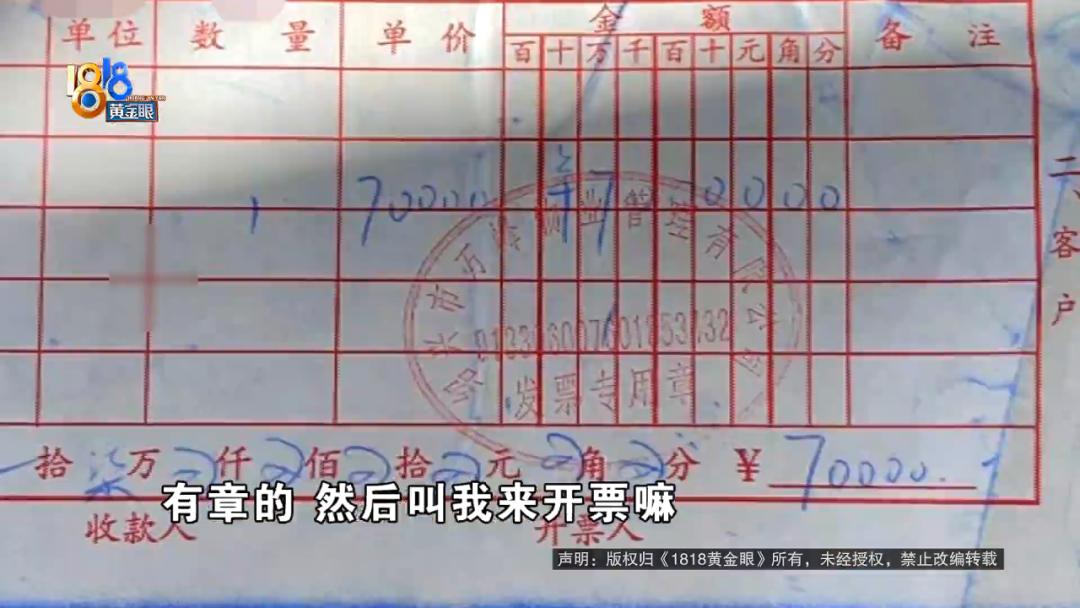 金额
单位 数量 单价 百十万千百十元角分 备注
1818
黄金眼
1 70000 7 0000
物业管理有限公司
发票专用章
二、客户
拾柒万 仟 佰 拾 元 角 分 ¥ 70000.
有章的 然后叫我来开票嘛
收款人 开票人
声明：版权归《1818黄金眼》所有，未经授权，禁止改编转载